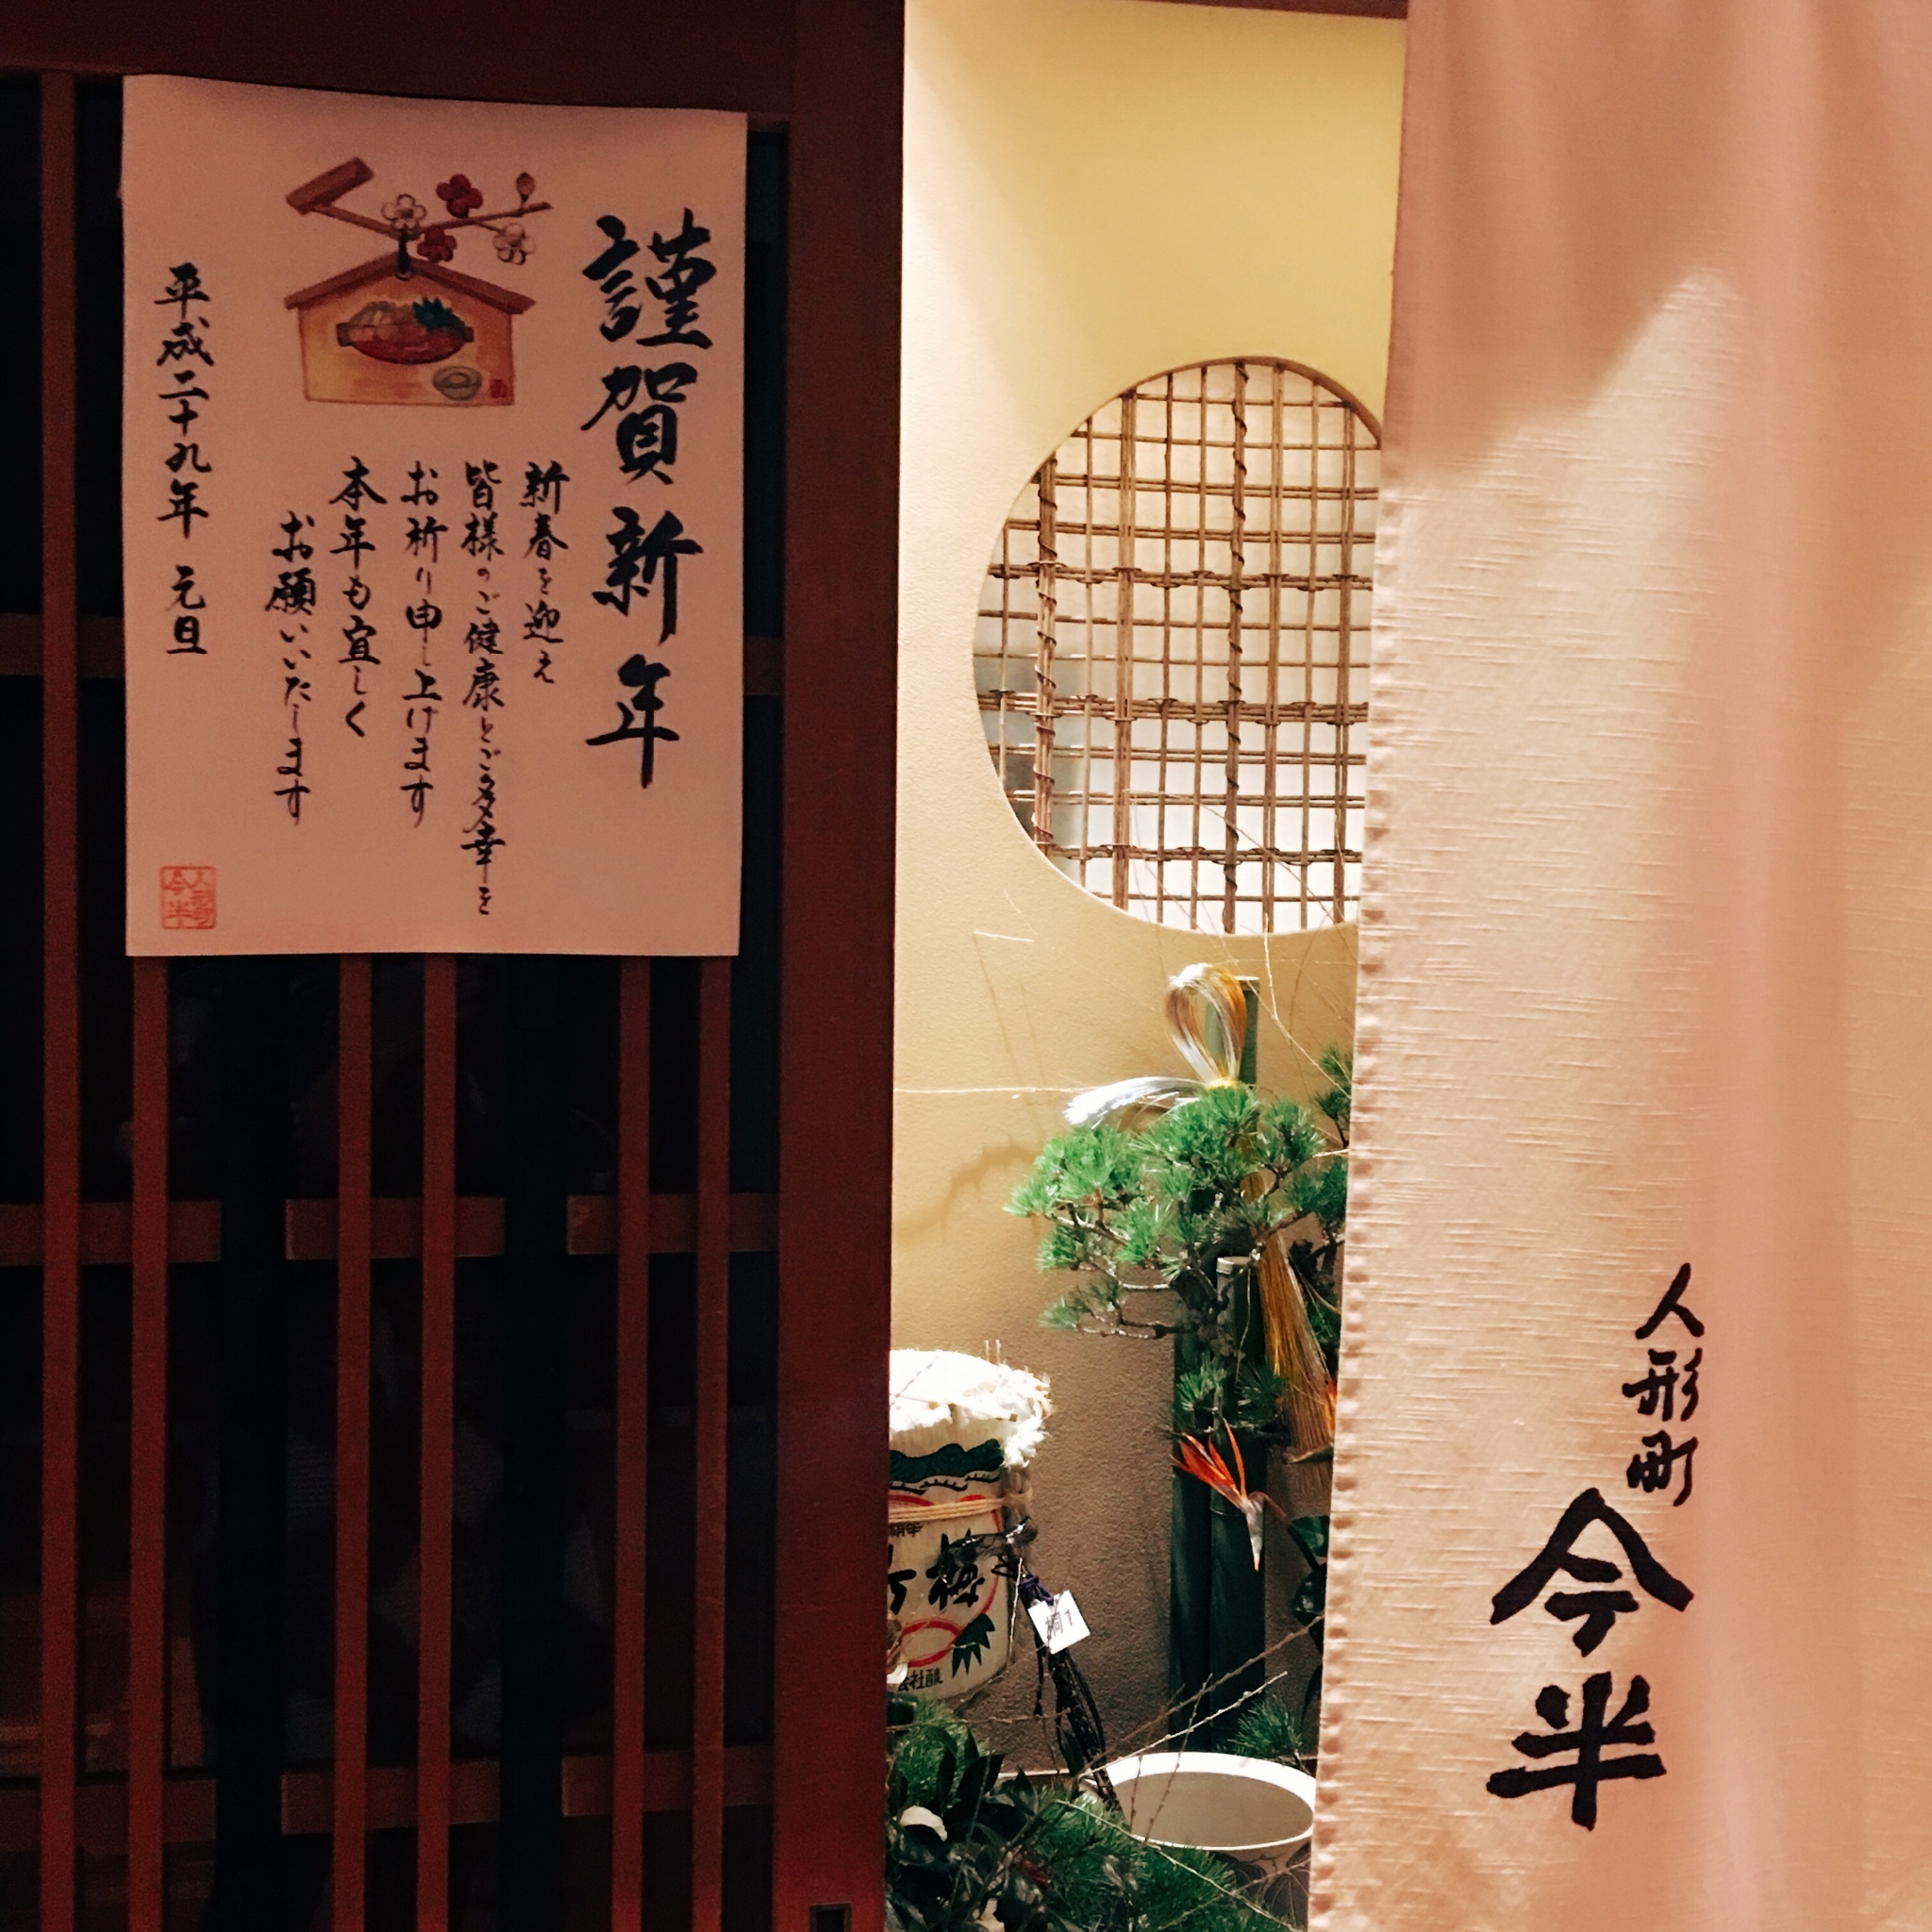 謹賀新年
新春を迎え
皆様のご健康とご多幸を
お祈り申し上げます
本年も宜しく
お願いいたします
平成二十九年 元旦
人形町
今半
人形町
今半
梅
会社醸
桐1